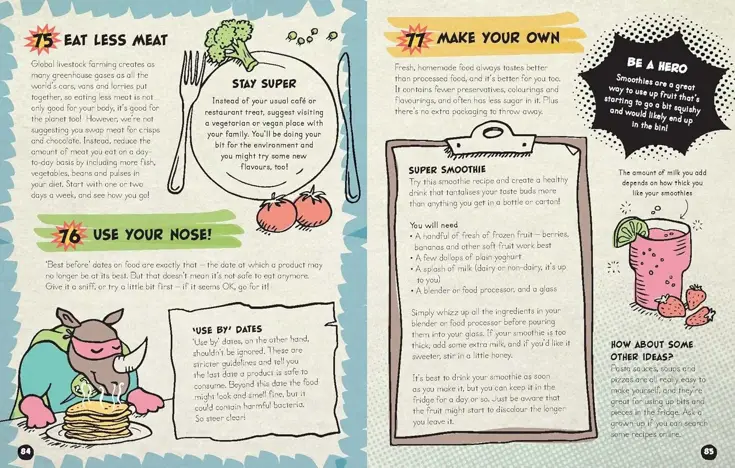 75 EAT LESS MEAT
Global livestock farming creates as
many greenhouse gases as all the
world's cars, vans and lorries put
together, so eating less meat is not
only good for your body, it's good for
the planet too! However, we're not
suggesting you swap meat for crisps
and chocolate. Instead, reduce the
amount of meat you eat on a day-
to-day basis by including more fish,
vegetables, beans and pulses in
your diet. Start with one or two
days a week, and see how you go!
STAY SUPER
Instead of your usual café or
restaurant treat, suggest visiting
a vegetarian or vegan place with
your family. You'll be doing your
bit for the environment and
you might try some new
flavours, too!
76 USE YOUR NOSE!
'Best before' dates on food are exactly that – the date at which a product may
no longer be at its best. But that doesn't mean it's not safe to eat anymore.
Give it a sniff, or try a little bit first – if it seems OK, go for it!
'USE BY' DATES
'Use by' dates, on the other hand,
shouldn't be ignored. These are
stricter guidelines and tell you
the last date a product is safe to
consume. Beyond this date the food
might look and smell fine, but it
could contain harmful bacteria.
So steer clear!
84
77 MAKE YOUR OWN
Fresh, homemade food always tastes better
than processed food, and it's better for you too.
It contains fewer preservatives, colourings and
flavourings, and often has less sugar in it. Plus
there's no extra packaging to throw away.
BE A HERO
Smoothies are a great
way to use up fruit that's
starting to go a bit squishy
and would likely end up
in the bin!
SUPER SMOOTHIE
Try this smoothie recipe and create a healthy
drink that tantalises your taste buds more
than anything you get in a bottle or carton!
You will need
• A handful of fresh of frozen fruit – berries,
bananas and other soft fruit work best
• A few dollops of plain yoghurt
• A splash of milk (dairy or non-dairy, it's up
to you)
• A blender or food processor, and a glass
Simply whizz up all the ingredients in your
blender or food processor before pouring
them into your glass. If your smoothie is too
thick, add some extra milk, and if you'd like it
sweeter, stir in a little honey.
It's best to drink your smoothie as soon
as you make it, but you can keep it in the
fridge for a day or so. Just be aware that
the fruit might start to discolour the longer
you leave it.
The amount of milk you add
depends on how thick you
like your smoothies
HOW ABOUT SOME
OTHER IDEAS?
Pasta sauces, soups and
pizzas are all really easy to
make yourself, and they're
great for using up bits and
pieces in the fridge. Ask a
grown-up if you can search
some recipes online.
85